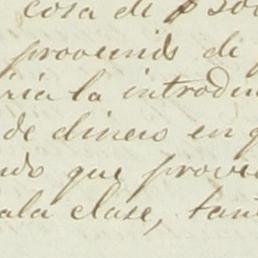 cosa de $ 500
provenido de
ria la introdu
de dinero en q
ndo que provi
ala clase, tan